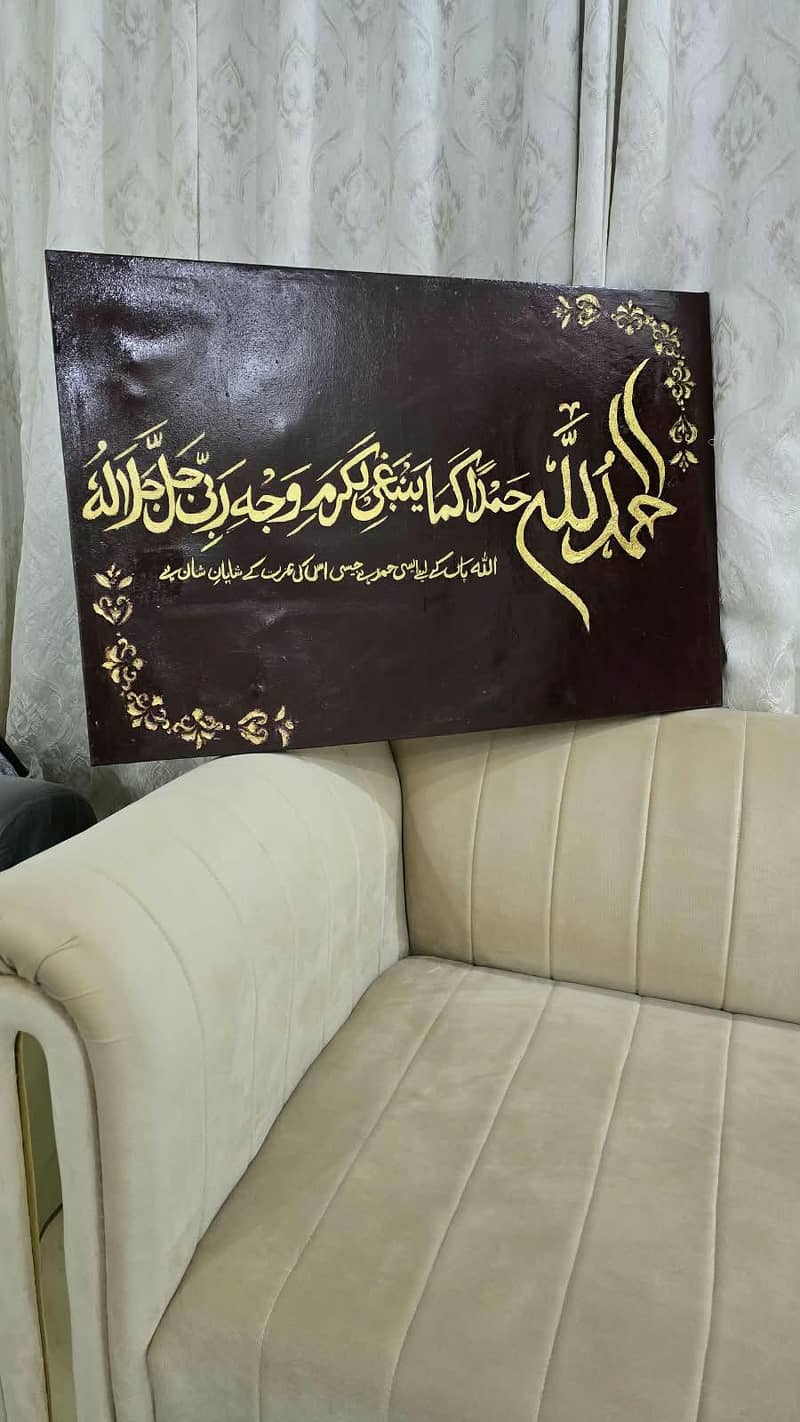 الحمدُ لِلّٰہ حَمْدًا كَمَا يَنْبَغِىْ لِكَرَمِ وَجْهِ رَبِّىْ جَلَّ جَلَالَهُ
اللہ پاک کے لیے ایسی حمد ہے جیسی اس کی عزت کے شایانِ شان ہے